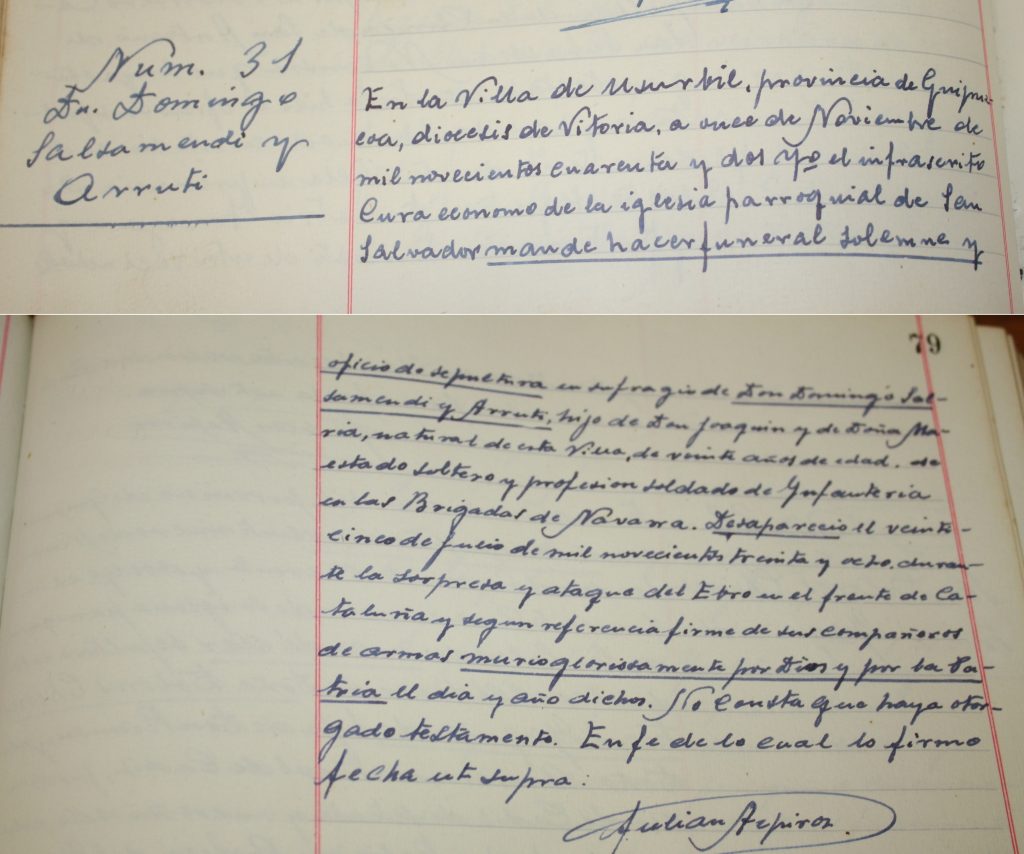 Num. 31
Dn. Domingo
Salsamendi y
Arruti
En la Villa de Usurbil, provincia de Guipuz-
coa, diocesis de Vitoria, a once de Noviembre de
mil novecientos cuarenta y dos yo el infrascrito
Cura economo de la iglesia parroquial de San
Salvador mande hacer funeral solemne y
79
oficio de sepultura en sufragio de Don Domingo Sal-
samendi y Arruti, hijo de Don Joaquin y de Doña Ma-
ria, natural de esta Villa, de veinte años de edad, de
estado soltero y profesion soldado de Ynfanteria
en las Brigadas de Navarra. Desaparecio el veinti-
cinco de Julio de mil novecientos treinta y ocho, duran-
te la sorpresa y ataque del Ebro en el frente de Ca-
taluña y segun referencia firme de sus compañeros
de armas murio gloriosamente por Dios y por la Pa-
tria el dia y año dichos. No consta que haya otor-
gado testamento. En fe de lo cual lo firmo
fecha ut supra:
Julian Azpiroz.